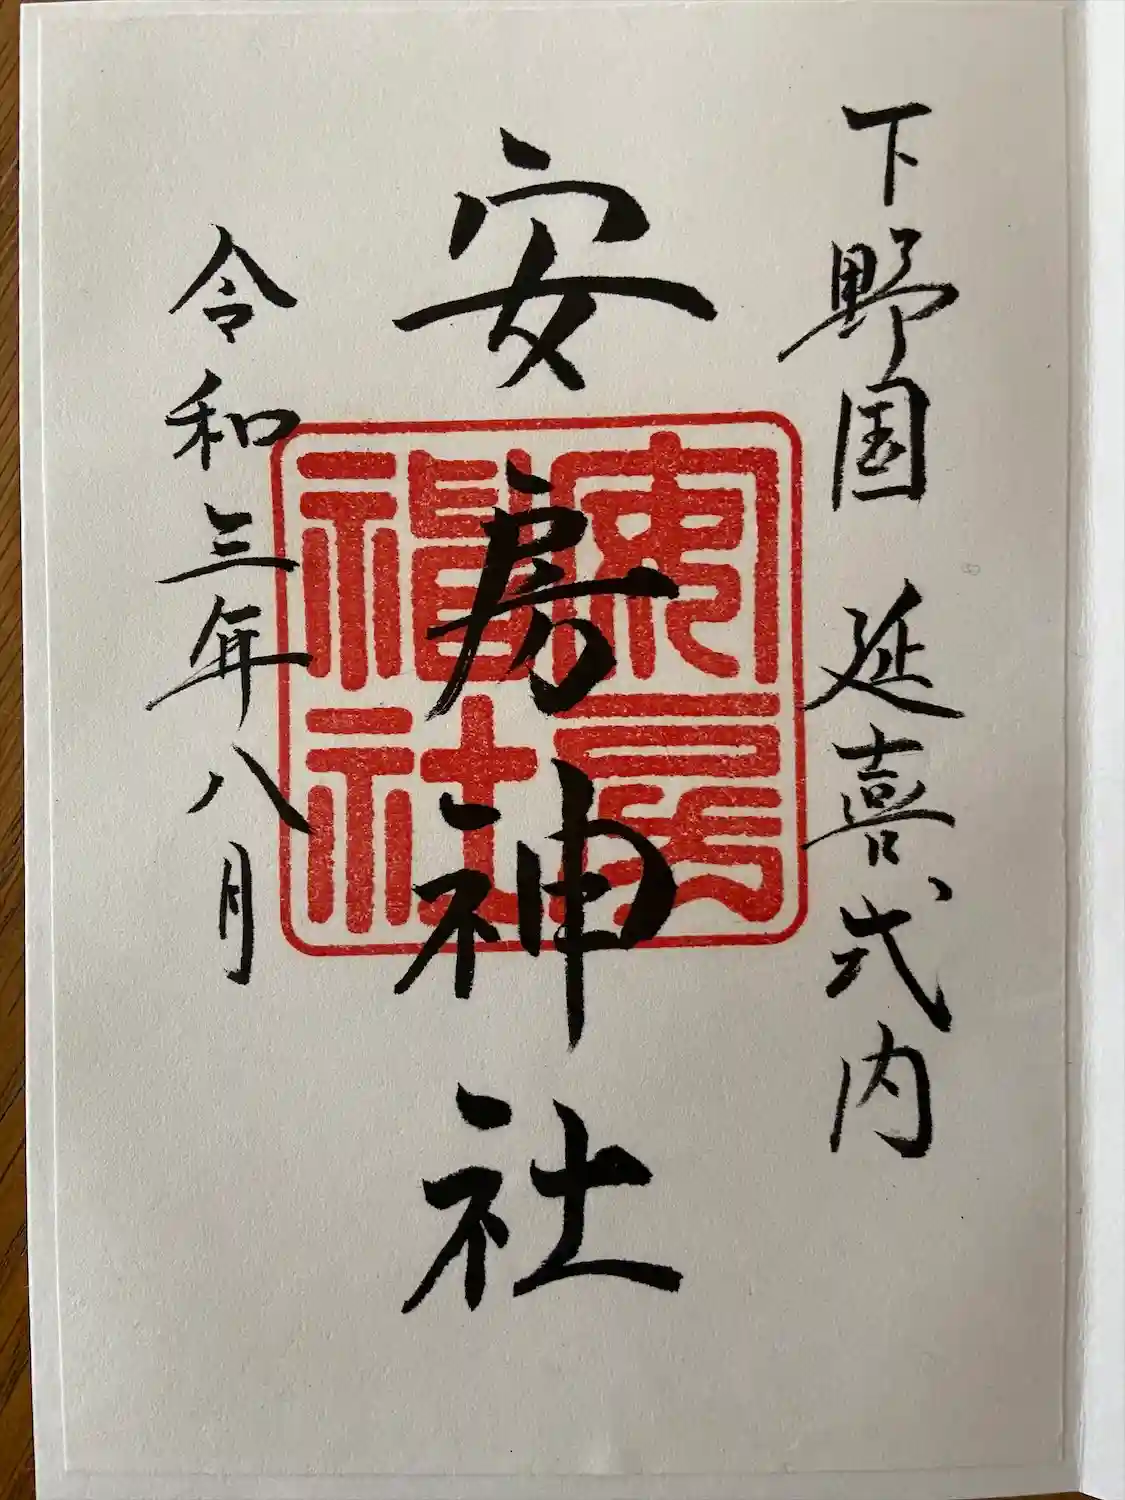 下野国 延喜式内
安房神社
令和三年八月
安房神社